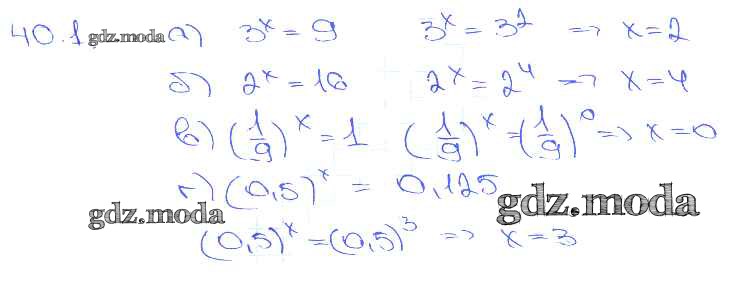 40.1 gdz.moda а) 3^x = 9 3^x = 3^2 => x = 2
б) 2^x = 16 2^x = 2^4 => x = 4
в) (1/9)^x = 1 (1/9)^x = (1/9)^0 => x = 0
г) (0,5)^x = 0,125
gdz.moda gdz.moda
(0,5)^x = (0,5)^3 => x = 3